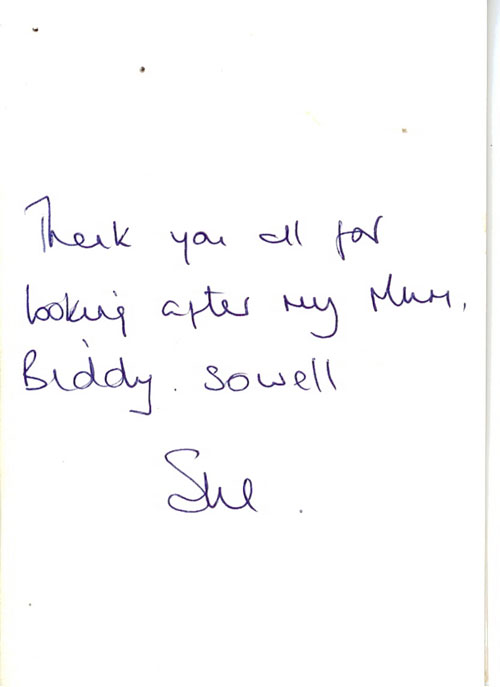 Thank you all for
looking after my Mum,
Biddy. sowell
Sue.